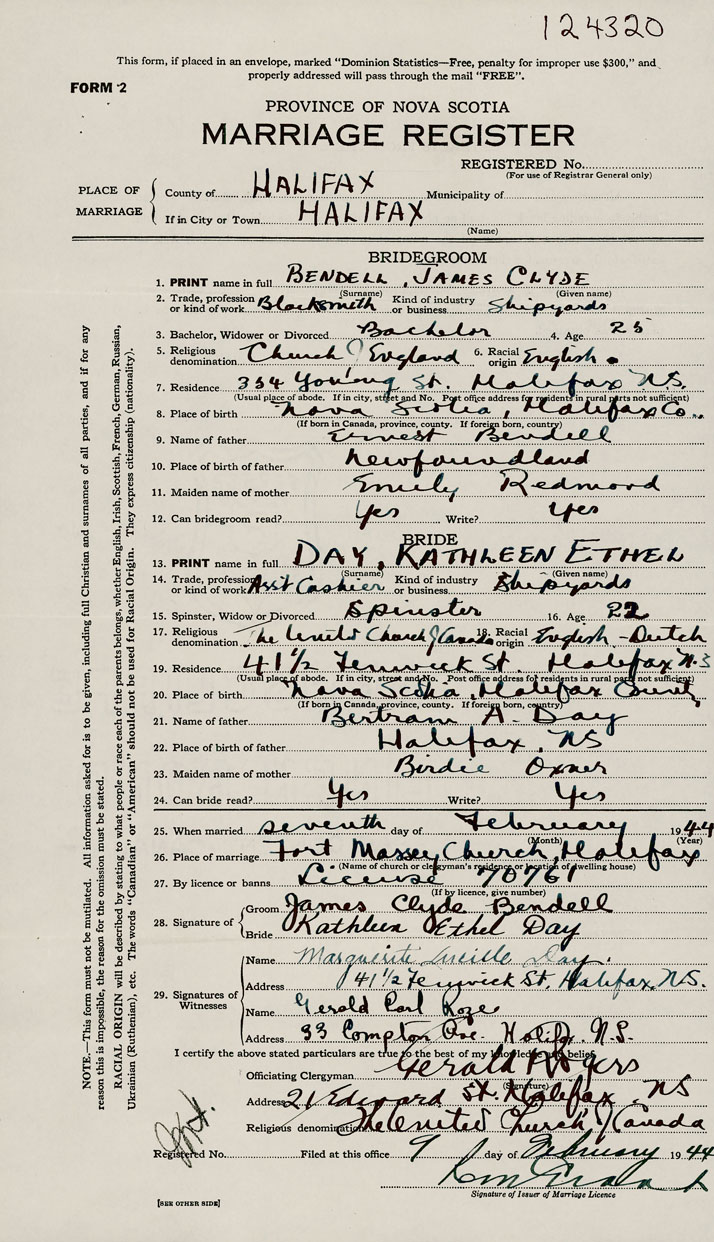 124320
This form, if placed in an envelope, marked "Dominion Statistics—Free, penalty for improper use $300," and
properly addressed will pass through the mail "FREE".
FORM 2
PROVINCE OF NOVA SCOTIA
MARRIAGE REGISTER
REGISTERED No.
(For use of Registrar General only)
PLACE OF MARRIAGE
County of HALIFAX Municipality of
If in City or Town HALIFAX
(Name)
BRIDEGROOM
1. PRINT name in full BENDELL, JAMES CLYDE
(Surname) (Given name)
2. Trade, profession or kind of work Blacksmith Kind of industry or business Shipyards
3. Bachelor, Widower or Divorced Bachelor 4. Age 25
5. Religious denomination Church of England 6. Racial origin English
7. Residence 354 Young St. Halifax N.S.
(Usual place of abode. If in city, street and No. Post office address for residents in rural parts not sufficient)
8. Place of birth Nova Scotia, Halifax Co.
(If born in Canada, province, county. If foreign born, country)
9. Name of father Ernest Bendell
10. Place of birth of father Newfoundland
11. Maiden name of mother Emily Redmond
12. Can bridegroom read? Yes Write? Yes
BRIDE
13. PRINT name in full DAY, KATHLEEN ETHEL
(Surname) (Given name)
14. Trade, profession or kind of work Ass't Cashier Kind of industry or business Shipyards
15. Spinster, Widow or Divorced Spinster 16. Age 22
17. Religious denomination The United Church of Canada 18. Racial origin English - Dutch
19. Residence 41 1/2 Fenwick St. Halifax N.S
(Usual place of abode. If in city, street and No. Post office address for residents in rural parts not sufficient)
20. Place of birth Nova Scotia, Halifax County
(If born in Canada, province, county. If foreign born, country)
21. Name of father Bertram A. Day
22. Place of birth of father Halifax, NS
23. Maiden name of mother Birdie Oxner
24. Can bride read? Yes Write? Yes
25. When married seventh day of February 1944
(Month) (Year)
26. Place of marriage Fort Massey Church, Halifax
(Name of church or clergyman's residence or location of dwelling house)
27. By licence or banns License 70761
(If by licence, give number)
28. Signature of
Groom James Clyde Bendell
Bride Kathleen Ethel Day
29. Signatures of Witnesses
Name Marguerite Lucille Day.
Address 41 1/2 Fenwick St, Halifax, N.S.
Name Gerald Carl Roze
Address 33 Compton Ave. Halifx. N.S.
I certify the above stated particulars are true to the best of my knowledge and belief.
Officiating Clergyman Gerald Rogers
(Signature)
Address 21 Edward St. Halifax, NS
Religious denomination The United Church of Canada
Registered No. Filed at this office 9 day of February 1944
Signature of Issuer of Marriage Licence
[SEE OTHER SIDE]
NOTE.—This form must not be mutilated. All information asked for is to be given, including full Christian and surnames of all parties, and if for any
reason this is impossible, the reason for the omission must be stated.
RACIAL ORIGIN will be described by stating to what people or race each of the parents belongs, whether English, Irish, Scottish, French, German, Russian,
Ukrainian (Ruthenian), etc. The words "Canadian" or "American" should not be used for Racial Origin. They express citizenship (nationality).